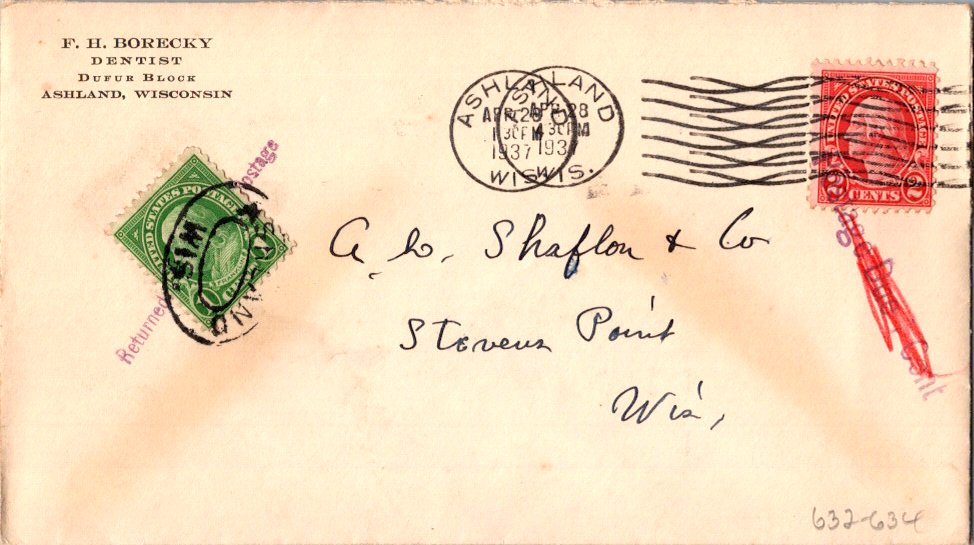 F. H. BORECKY
DENTIST
DUFUR BLOCK
ASHLAND, WISCONSIN
ASHLAND
APR 28
1 30 PM
1937
WIS.
ASHLAND
APR 28
4 30 PM
1937
WIS.
UNITED STATES POSTAGE
2 CENTS 2
UNITED STATES POSTAGE
ASHLAND
WIS.
Returned Postage
Postage Due Cent
A. L. Shaflon & Co
Stevens Point
Wis,
632-634